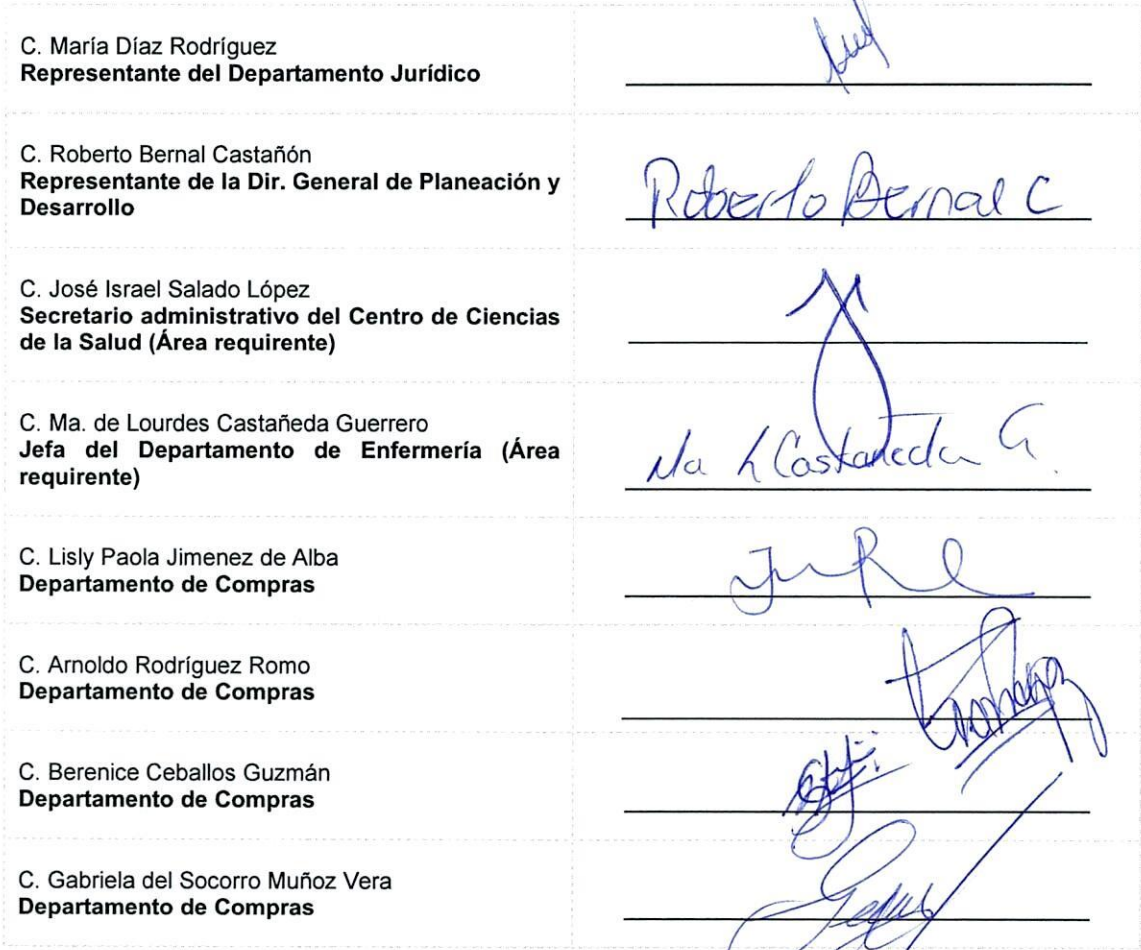 C. María Díaz Rodríguez
Representante del Departamento Jurídico
C. Roberto Bernal Castañón
Representante de la Dir. General de Planeación y
Desarrollo
Roberto Bernal C
C. José Israel Salado López
Secretario administrativo del Centro de Ciencias
de la Salud (Área requirente)
C. Ma. de Lourdes Castañeda Guerrero
Jefa del Departamento de Enfermería (Área
requirente)
Ma L Castañeda G.
C. Lisly Paola Jimenez de Alba
Departamento de Compras
C. Arnoldo Rodríguez Romo
Departamento de Compras
C. Berenice Ceballos Guzmán
Departamento de Compras
C. Gabriela del Socorro Muñoz Vera
Departamento de Compras